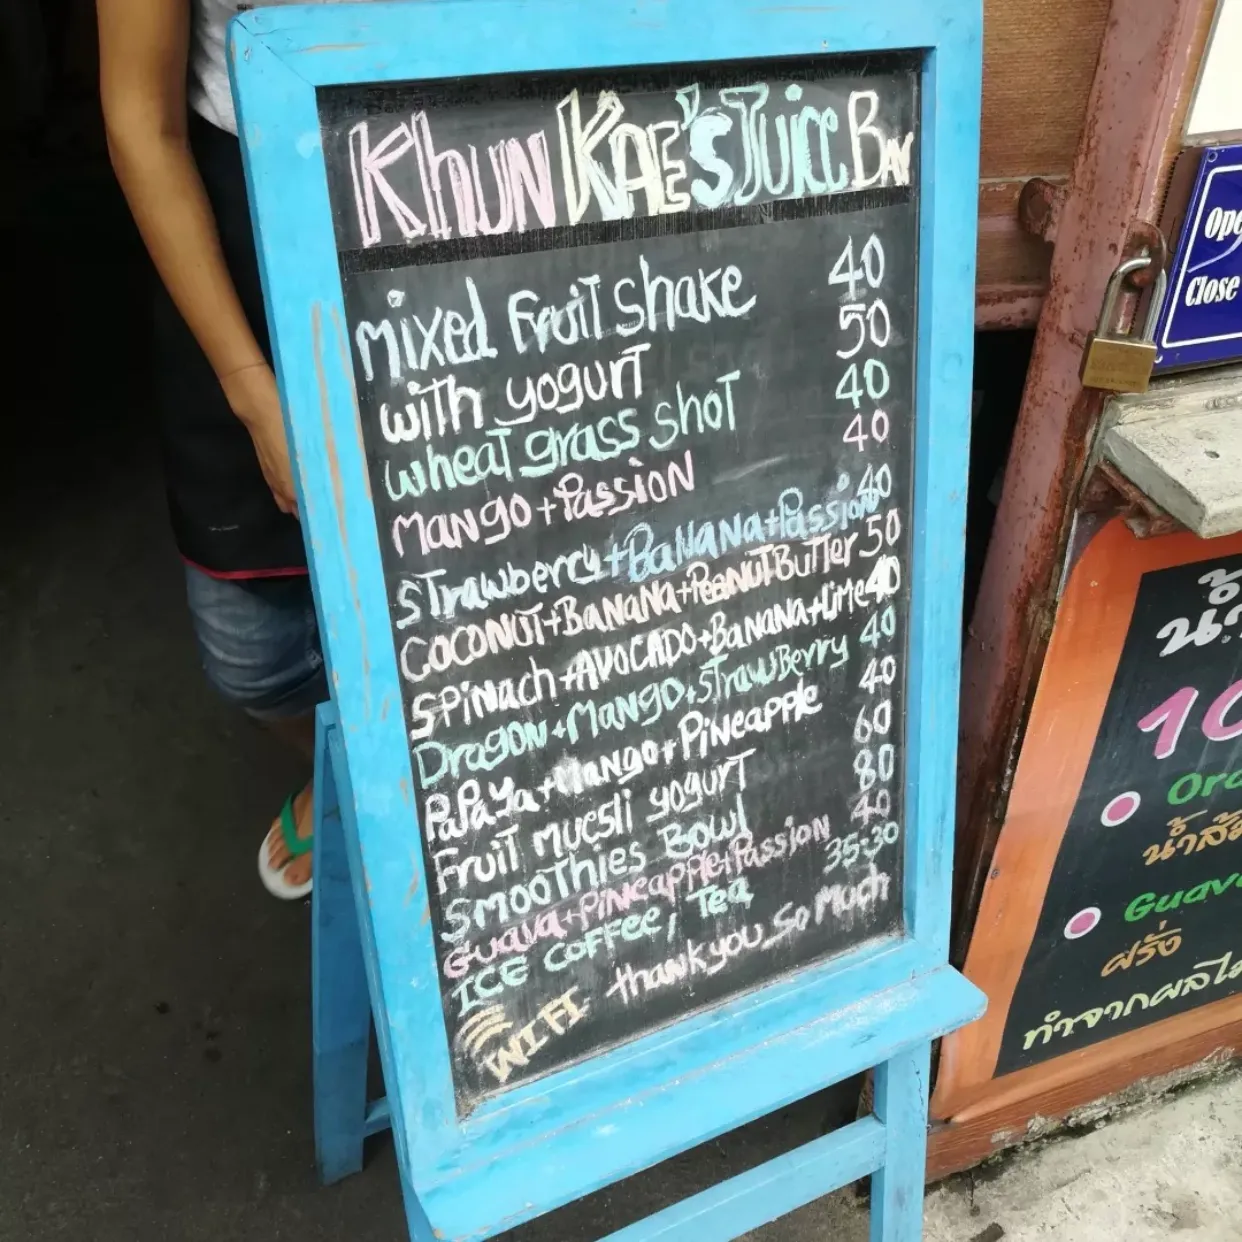 Khun Kae's Juice Bar
mixed Fruit shake 40
with yogurt 50
wheat grass shot 40
Mango + Passion 40
Strawberry + Banana + Passion 40
Coconut + Banana + PeanutButter 50
Spinach + Avocado + Banana + Lime 40
Dragon + Mango + StrawBerry 40
Papaya + Mango + Pineapple 40
Fruit muesli yogurt 60
Smoothies Bowl 80
Guava + Pineapple + Passion 40
ICE COFFEE, Tea 35:30
WIFI thank you so much
Ope
Close
น้ำ
10
Ora
น้ำส้ม
Guava
ฝรั่ง
ทำจากผลไม้